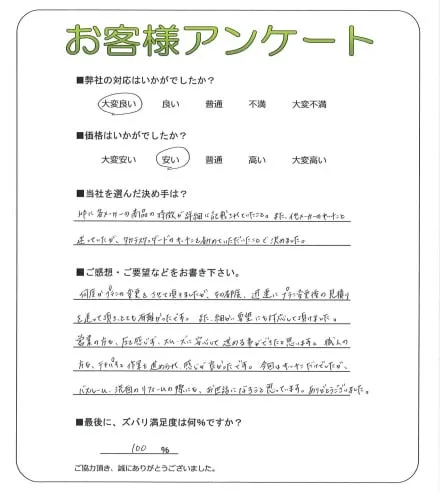 お客様アンケート
■弊社の対応はいかがでしたか？
大変良い 良い 普通 不満 大変不満
■価格はいかがでしたか？
大変安い 安い 普通 高い 大変高い
■当社を選んだ決め手は？
HPに各メーカーの商品の特徴が詳細に記載されていたこと。また、他メーカーのキッチンと
迷っていたが、タカラスタンダードのキッチンを勧めていただいたことで決めました。
■ご感想・ご要望などをお書き下さい。
何度かプランの変更をさせて頂きましたが、その都度、迅速にプラン変更後の見積り
を送って頂き、とても有難かったです。また、細かい要望にも対応して頂けました。
営業の方も、気を遣いず、スムーズに安心して進める事ができたと思います。職人の
方も、テキパキと作業を進められ、感じが良かったです。今回はキッチンだけでしたが、
バスルーム、洗面のリフォームの際にも、お世話になろうと思っています。ありがとうございました。
■最後に、ズバリ満足度は何％ですか？
100 ％
ご協力頂き、誠にありがとうございました。